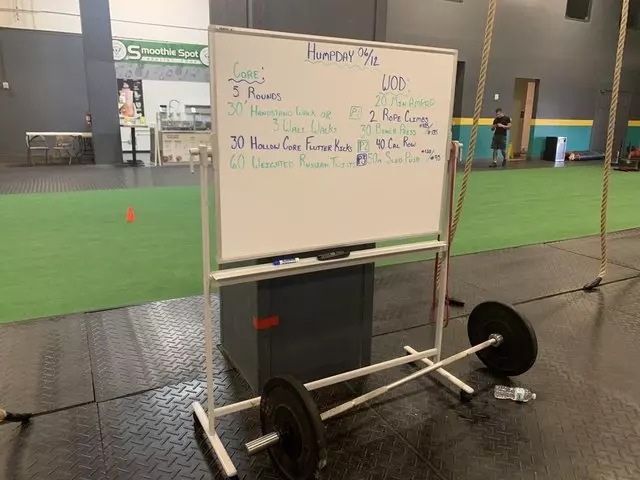 Smoothie Spot
HUMPDAY 06/12
CORE:
5 ROUNDS
30' HANDSTAND WALK OR
3 WALL WALKS
30 HOLLOW CORE FLUTTER KICKS
60 WEIGHTED RUSSIAN TWISTS
WOD:
20 MIN AMRAP
P1 2 ROPE CLIMBS
30 BENCH PRESS
P2 40 CAL ROW
P3 50m SLED PUSH